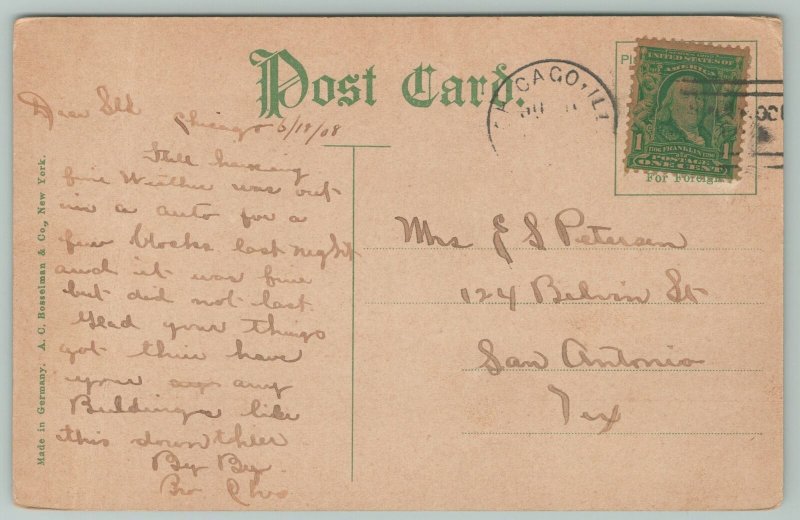 Post Card.
CHICAGO, ILL
UNITED STATES OF
AMERICA
1 1
FRANKLIN
POSTAGE
ONE CENT
For Foreign
Dear
Chicago 6/18/08
Still having
fine Weather was out
in a auto for a
few blocks last night
and it was fine
but did not last
Glad your things
got thire have
youre any
Buildings like
this down thier
By By.
Bro
Mrs E S Petersen
124 Belvin St
San Antonio
Tex
Made in Germany. A. C. Bosselman & Co., New York.